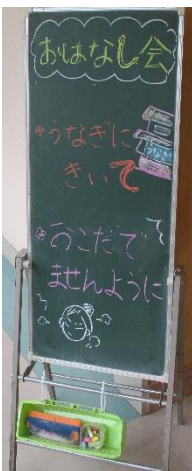 おはなし会
うなぎに
きいて
うなぎ
のこだで
ませんように